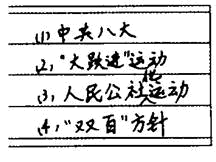 (1)中央八大
(2)"大跃进"运动
(3)人民公社化运动
(4)"双百"方针